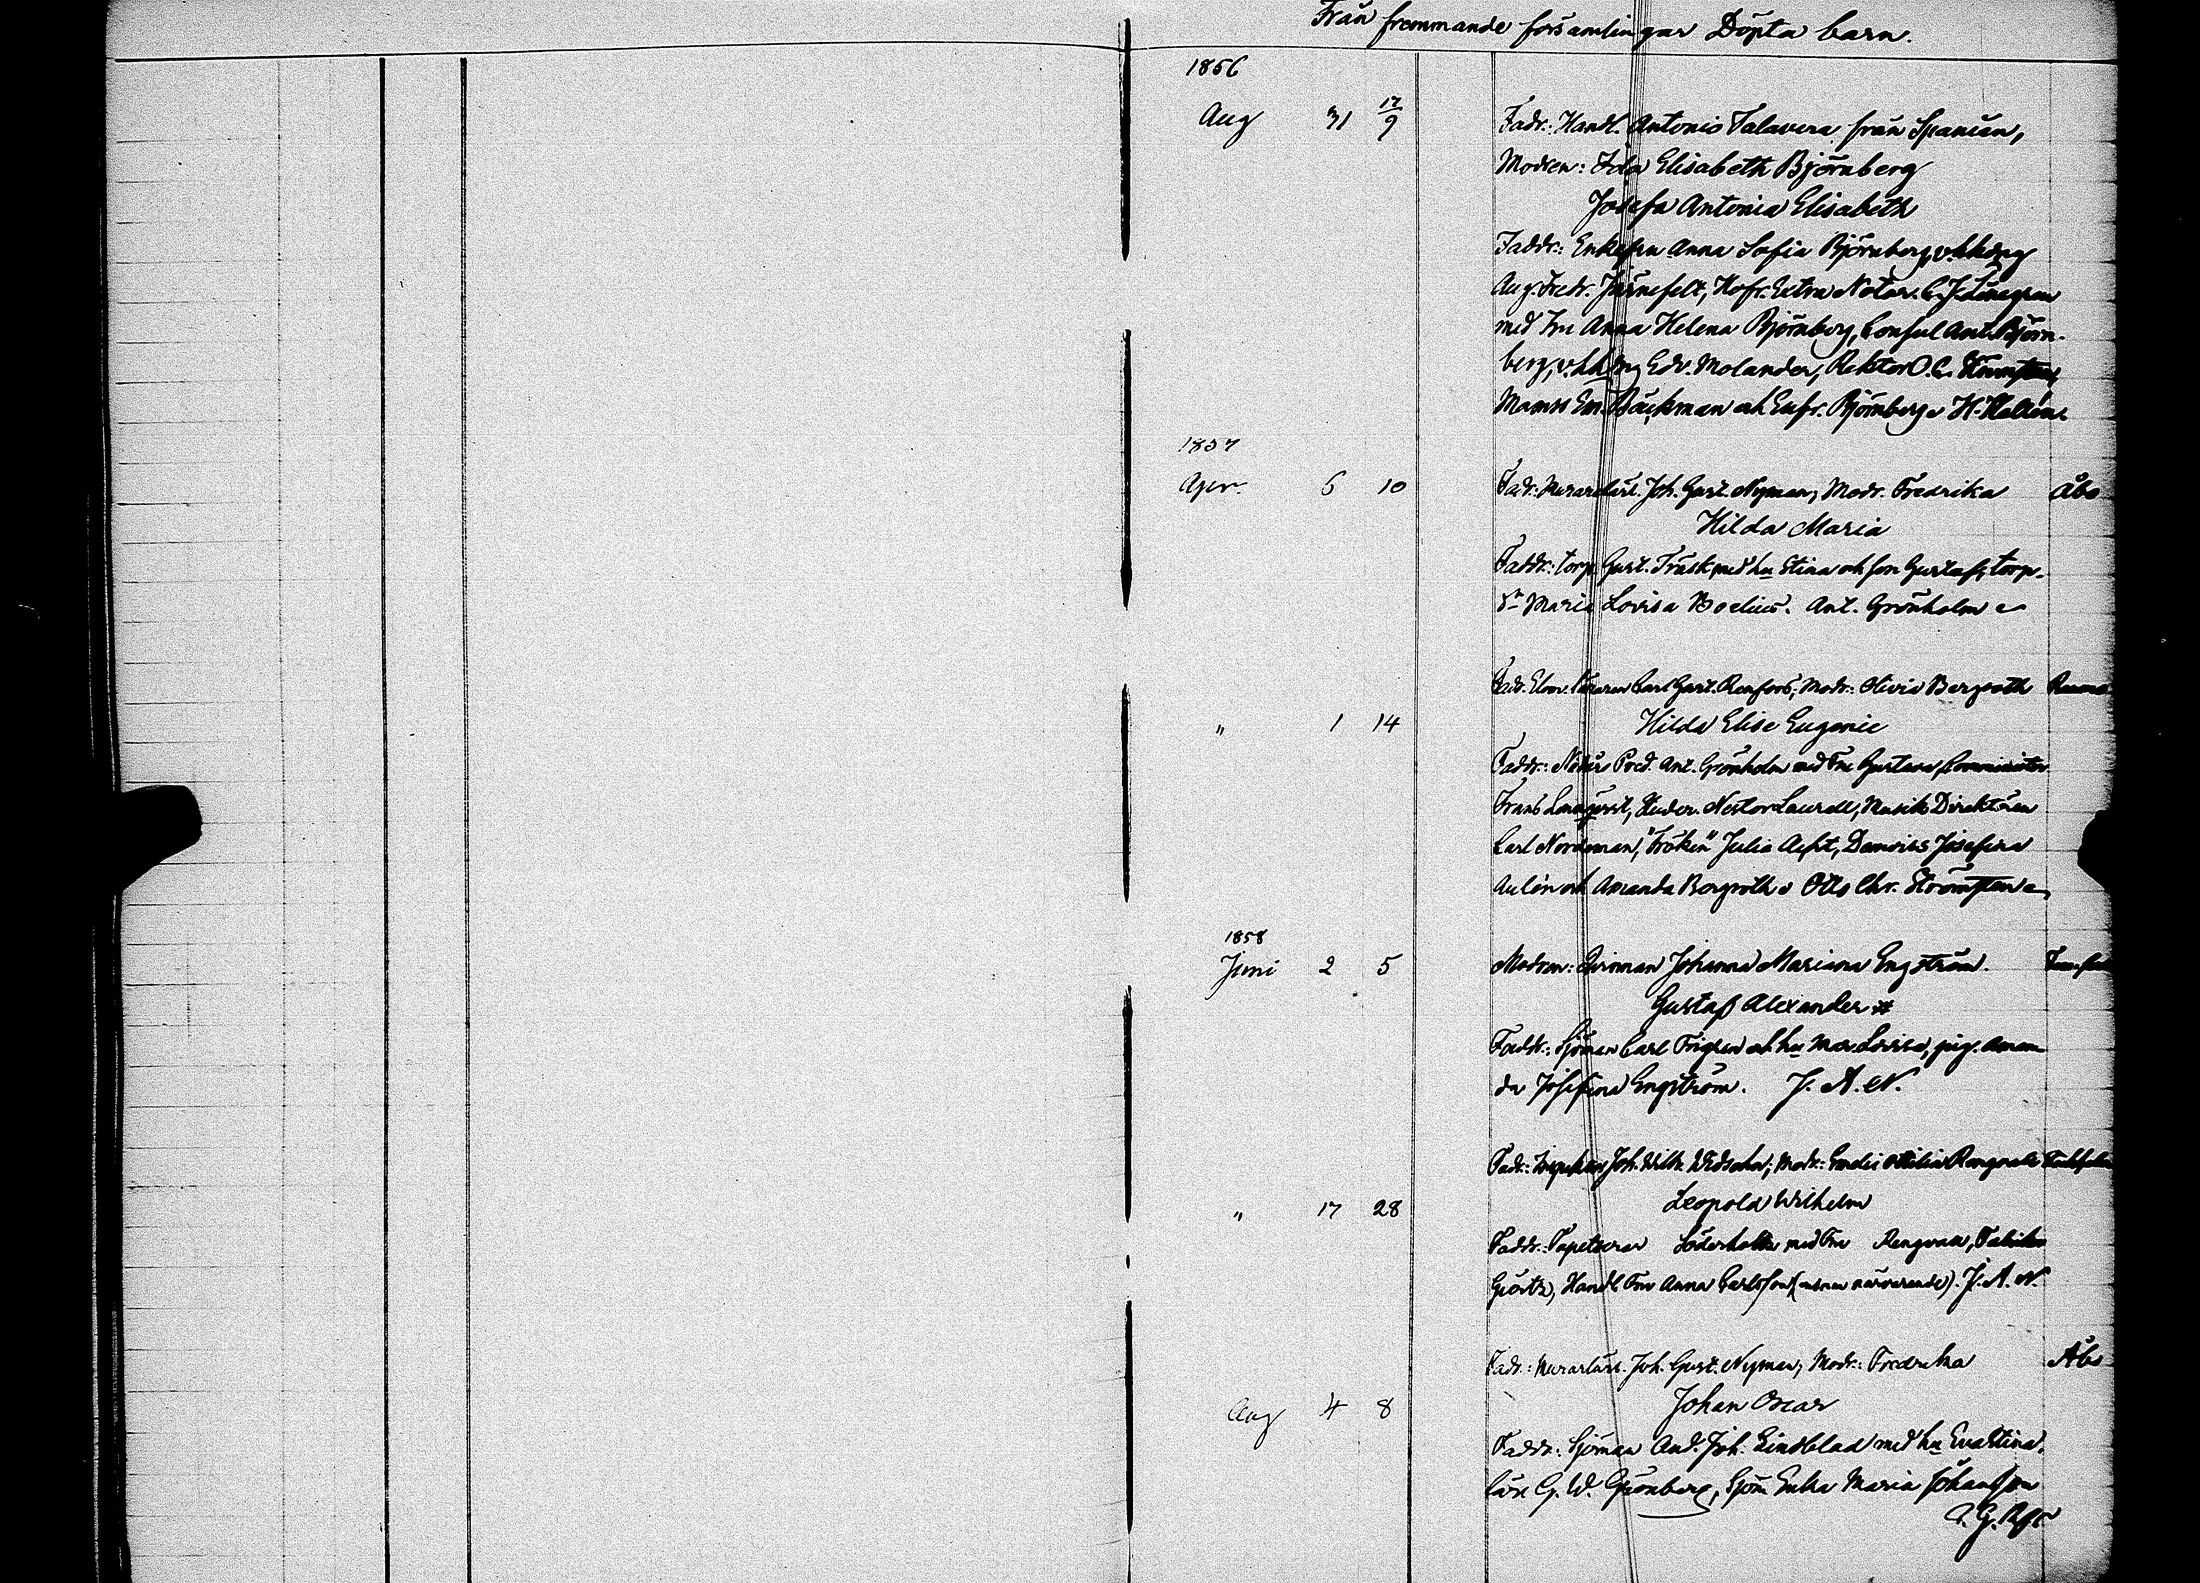 Från fremmande församlingar Döpta barn.
1856
Aug 31 17/9 Fadr: Handl. Antonio Talavera från Spanien,
Modren: Ida Elisabeth Björnberg
Josefa Antonia Elisabeth
Faddr: Enkefru Anna Sofia Björnberg,
Aug. Fredr. Järnefelt, Hofr. Extra Notar. C. J.
med Fru Anna Helena Björnberg, Consul Ant. Björn-
berg, Edv. Molander, Rektor O. C.
Mamss Em. Bäckman och Eufr. Björnberg
1857
Apr. 6 10 Fadr: Murarelärl. Joh. Gust. Nyman, Modr. Fredrika Åbo
Hilda Maria
Faddr: torp. Gust. Träsk med hu Stina och son Gustaf, torp.
Maria Lovisa Boelius. Ant. Grönholm
Fadr. Carl Gust. Renfors, Modr: Olivia Bergroth Raumo
" 1 14 Hilda Elise Eugenie
Faddr: Pred. Ant. Grönholm med Fru Gustava,
Frans Nestor Laurell, Musik Direktören
Carl Nordman, "Fröken" Julia Demoiss Josefina
Aulén och Amanda Bergroth Otto Chr. Strömsten
1858
Juni 2 5 Modren: Johanna Mariana Engström.
Gustaf Alexander #
Faddr: Sjöman Carl och hu Mar. Lovisa, pig. Aman-
da Josefina Engström. J. A. N.
Fadr: Joh. Wilh. Modr:
" 17 28 Leopold Wilhelm
Faddr: Tapetserar med Fru
Handl. Fru Anna Carlsson J. A. N.
Fadr: Murarlärl. Joh. Gust. Nyman, Modr: Fredrika Åbo
Aug 4 8 Johan Oscar
Faddr: Sjöman And. Joh. Lindblad med hu Eva Stina,
G. W. Grönberg, Sjöm Enka Maria Johansson